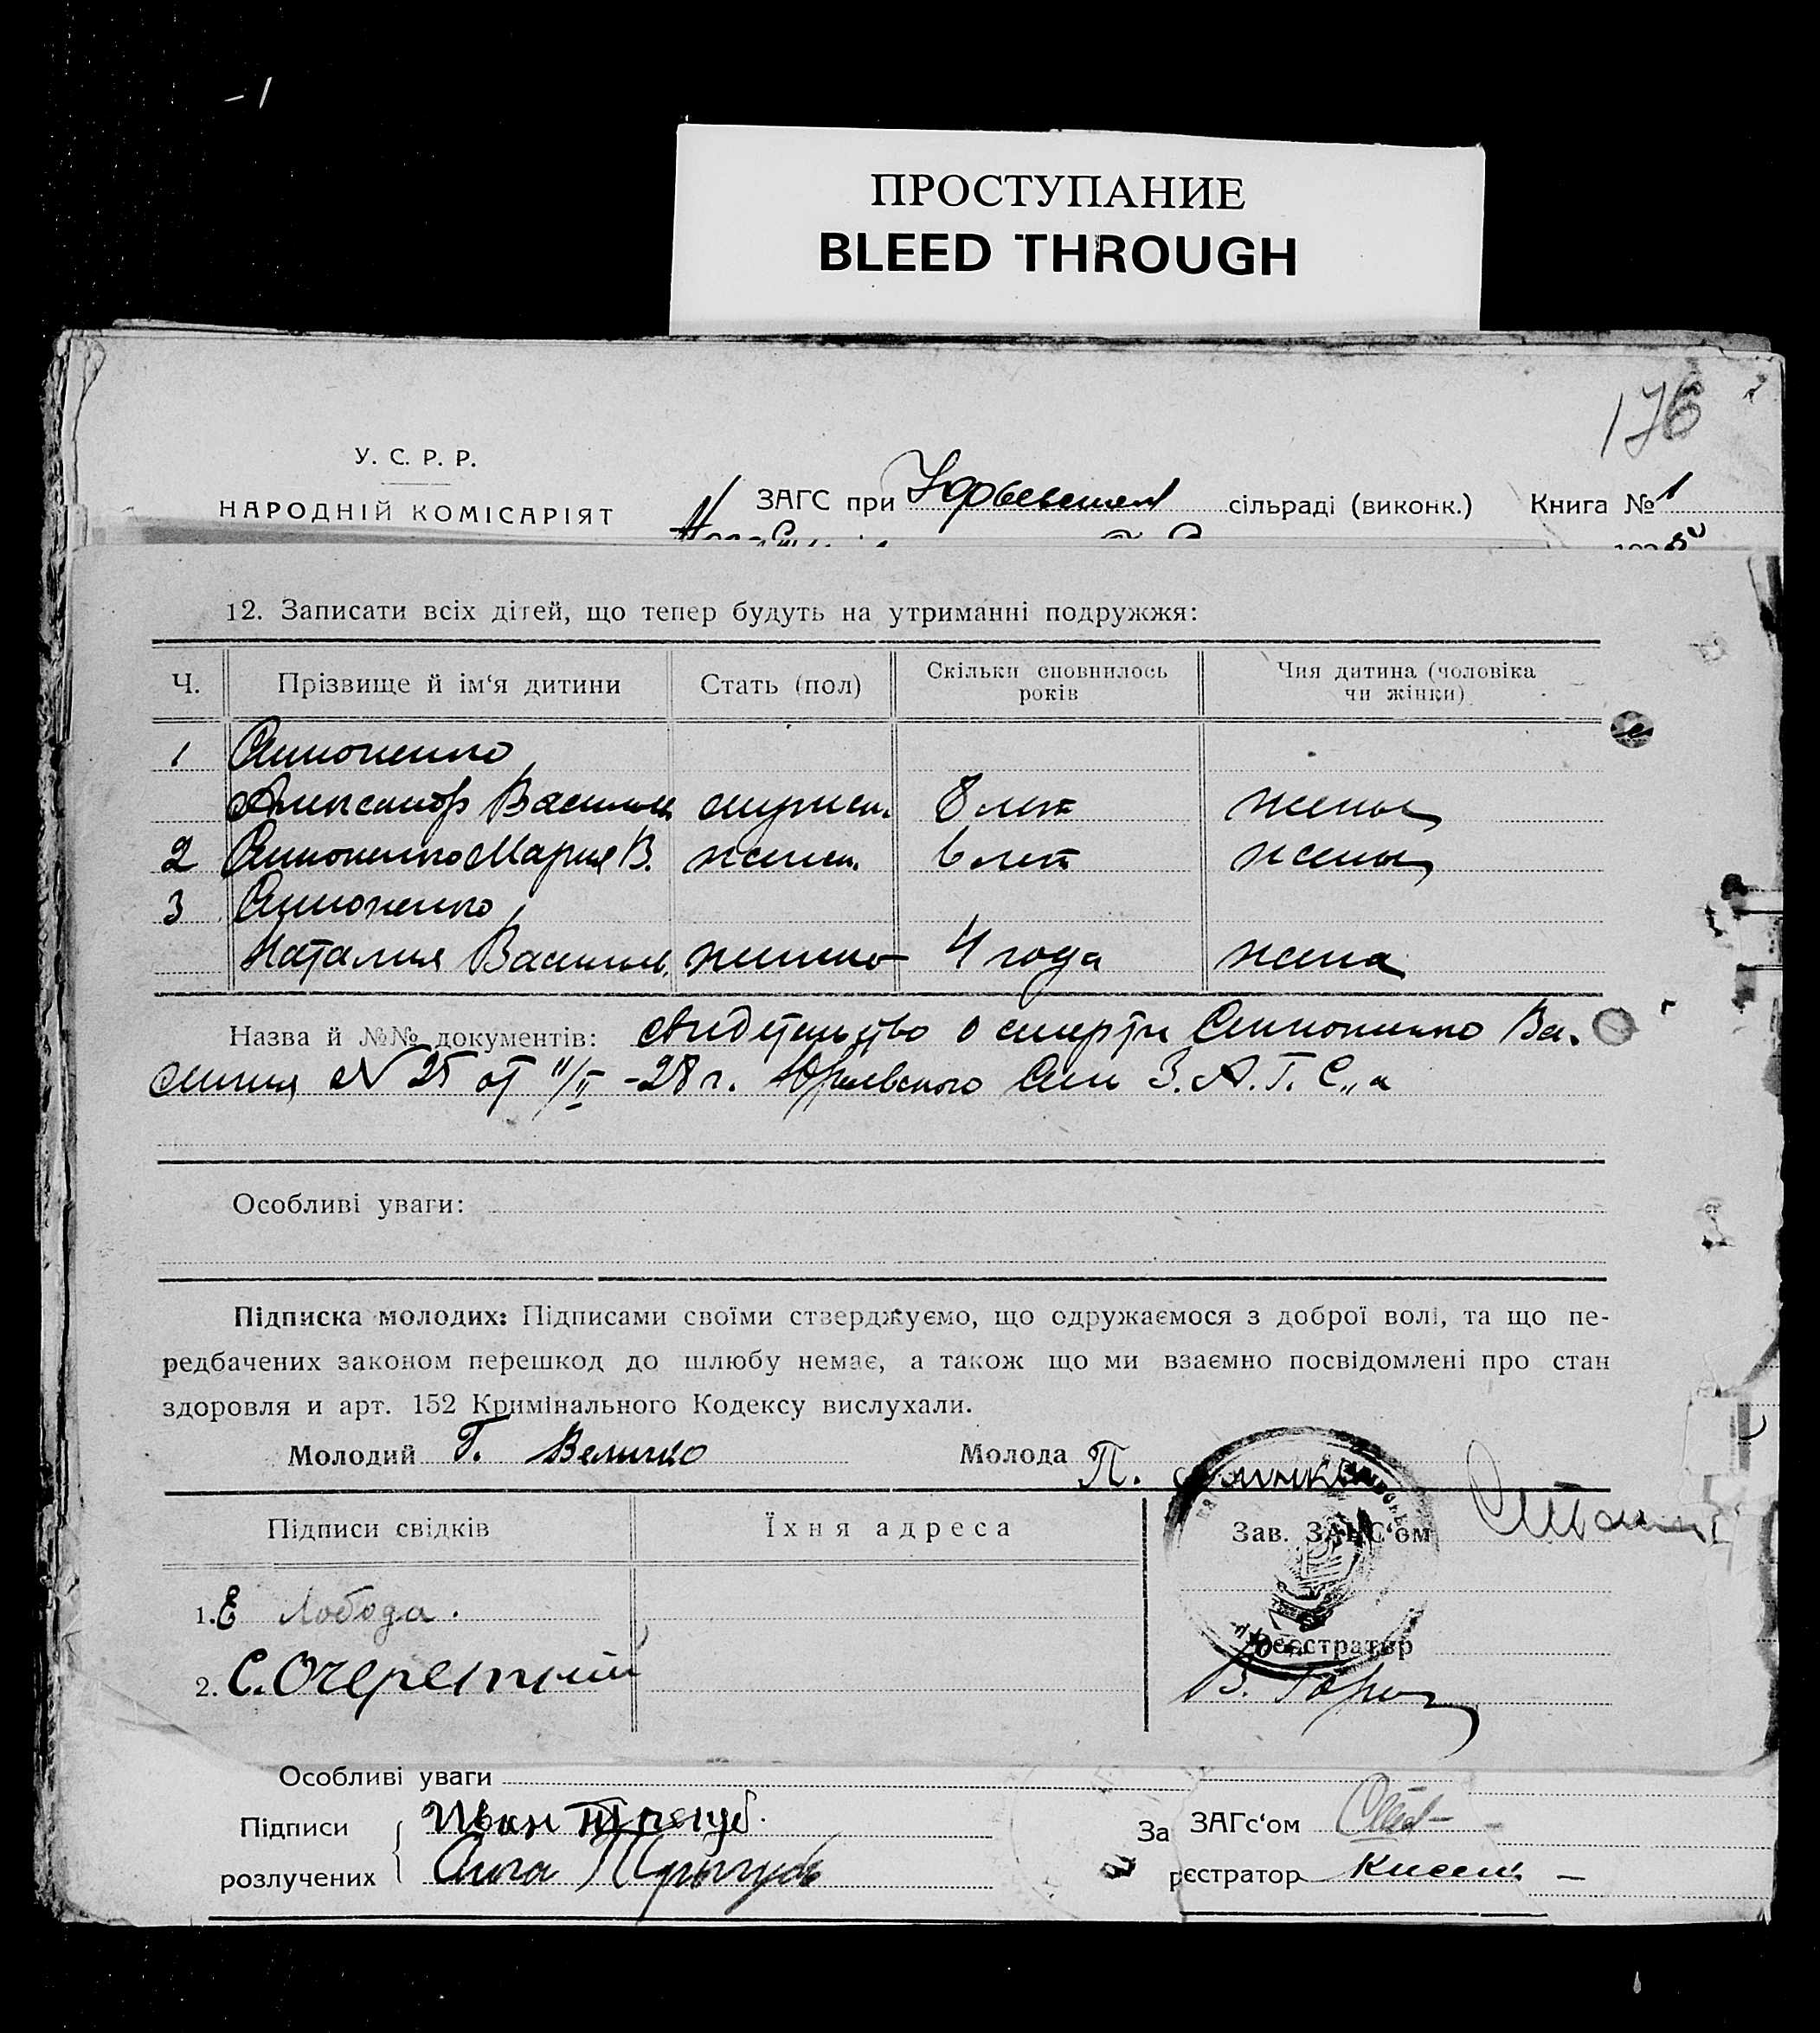 – 1
ПРОСТУПАНИЕ
BLEED THROUGH
176
У. С. Р. Р.
НАРОДНІЙ КОМІСАРІЯТ
ЗАГС при сільраді (виконк.) Книга № 1
12. Записати всіх дітей, що тепер будуть на утриманні подружжя:
Ч. Прізвище й ім‘я дитини Стать (пол) Скільки сповнилось років Чия дитина (чоловіка чи жінки)
1
Александр Васильев 8 лет жены
2 Мария В. женск. 6 лет жены
3
Наталия Васильев. 4 года жена
Назва й №№ документів: свидетельство о смерти Ва-
силия № 25 от 11/II -28 г. Юрьевского З.А.Г.С„а
Особливі уваги:
Підписка молодих: Підписами своїми стверджуємо, що одружаємося з доброї волі, та що пе-
редбачених законом перешкод до шлюбу немає, а також що ми взаємно посвідомлені про стан
здоровля и арт. 152 Кримінального Кодексу вислухали.
Молодий Г. Величко Молода П.
Підписи свідків Їхня адреса Зав. ЗАГС‘ом
1. Е Лобода.
Реєстратор
2. С. Очеретний В.
Особливі уваги
Підписи розлучених Иван
Ольга
За ЗАГс‘ом
рєстратор